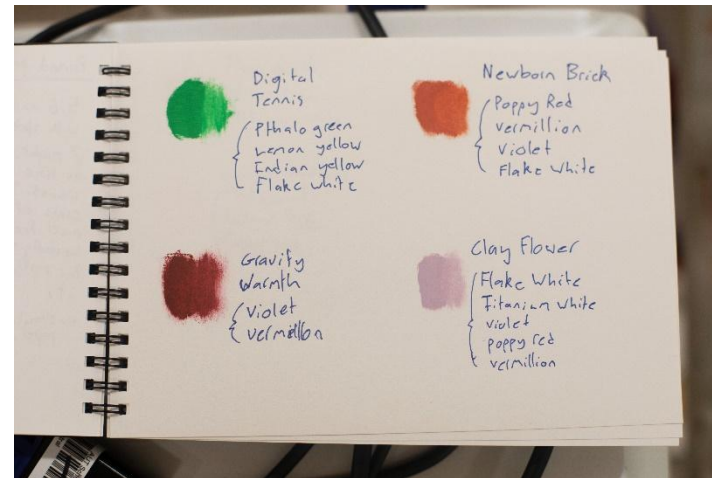 Digital
Tennis
Pthalo green
Lemon yellow
Indian yellow
Flake white
Newborn Brick
Poppy Red
vermillion
violet
Flake White
Gravity
Warmth
violet
vermillion
Clay Flower
Flake White
Titanium White
violet
poppy red
vermillion